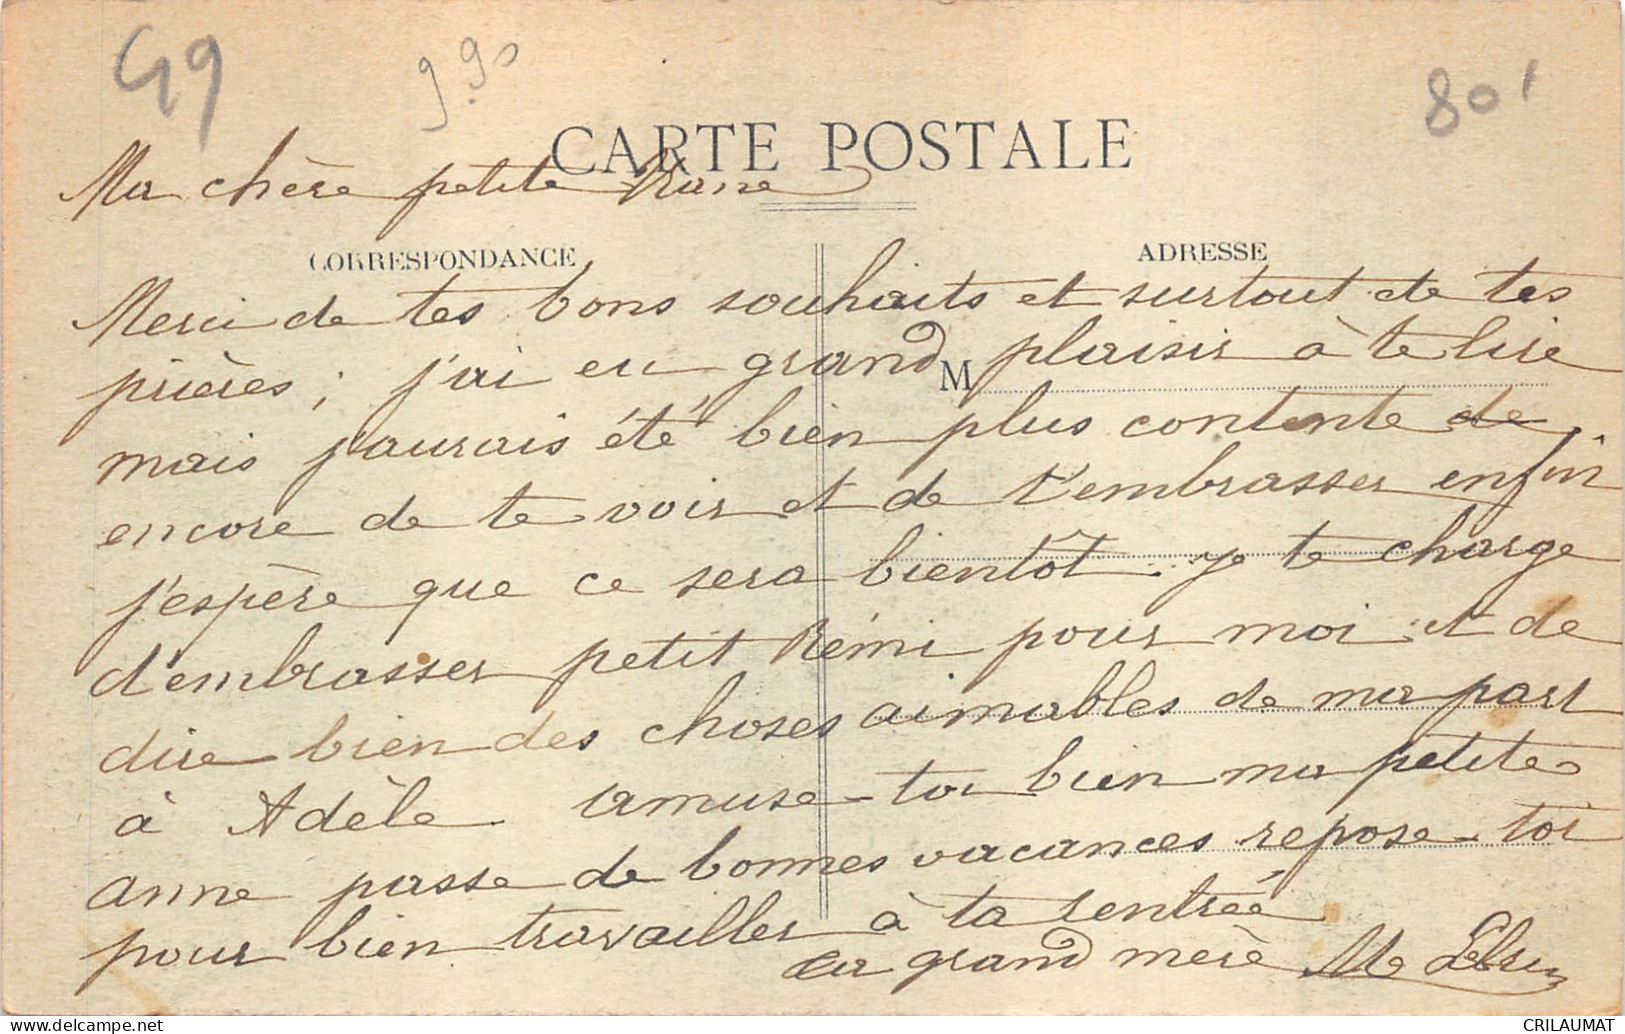 49
9.90
801
CARTE POSTALE
Ma chère petite
CORRESPONDANCE
ADRESSE
Merci de tes bons souhaits et surtout de tes
prières ; j'ai eu grand plaisir à te lire
M
mais j'aurais été bien plus contente de
encore de te voir et de t'embrasser enfin
j'espère que ce sera bientôt je te charge
d'embrasser petit Rémi pour moi et de
dire bien des choses aimables de ma part
à Adèle amuse-toi bien ma petite
anne passe de bonnes vacances repose-toi
pour bien travailler à ta rentrée
ta grand mère M
CRILAUMAT